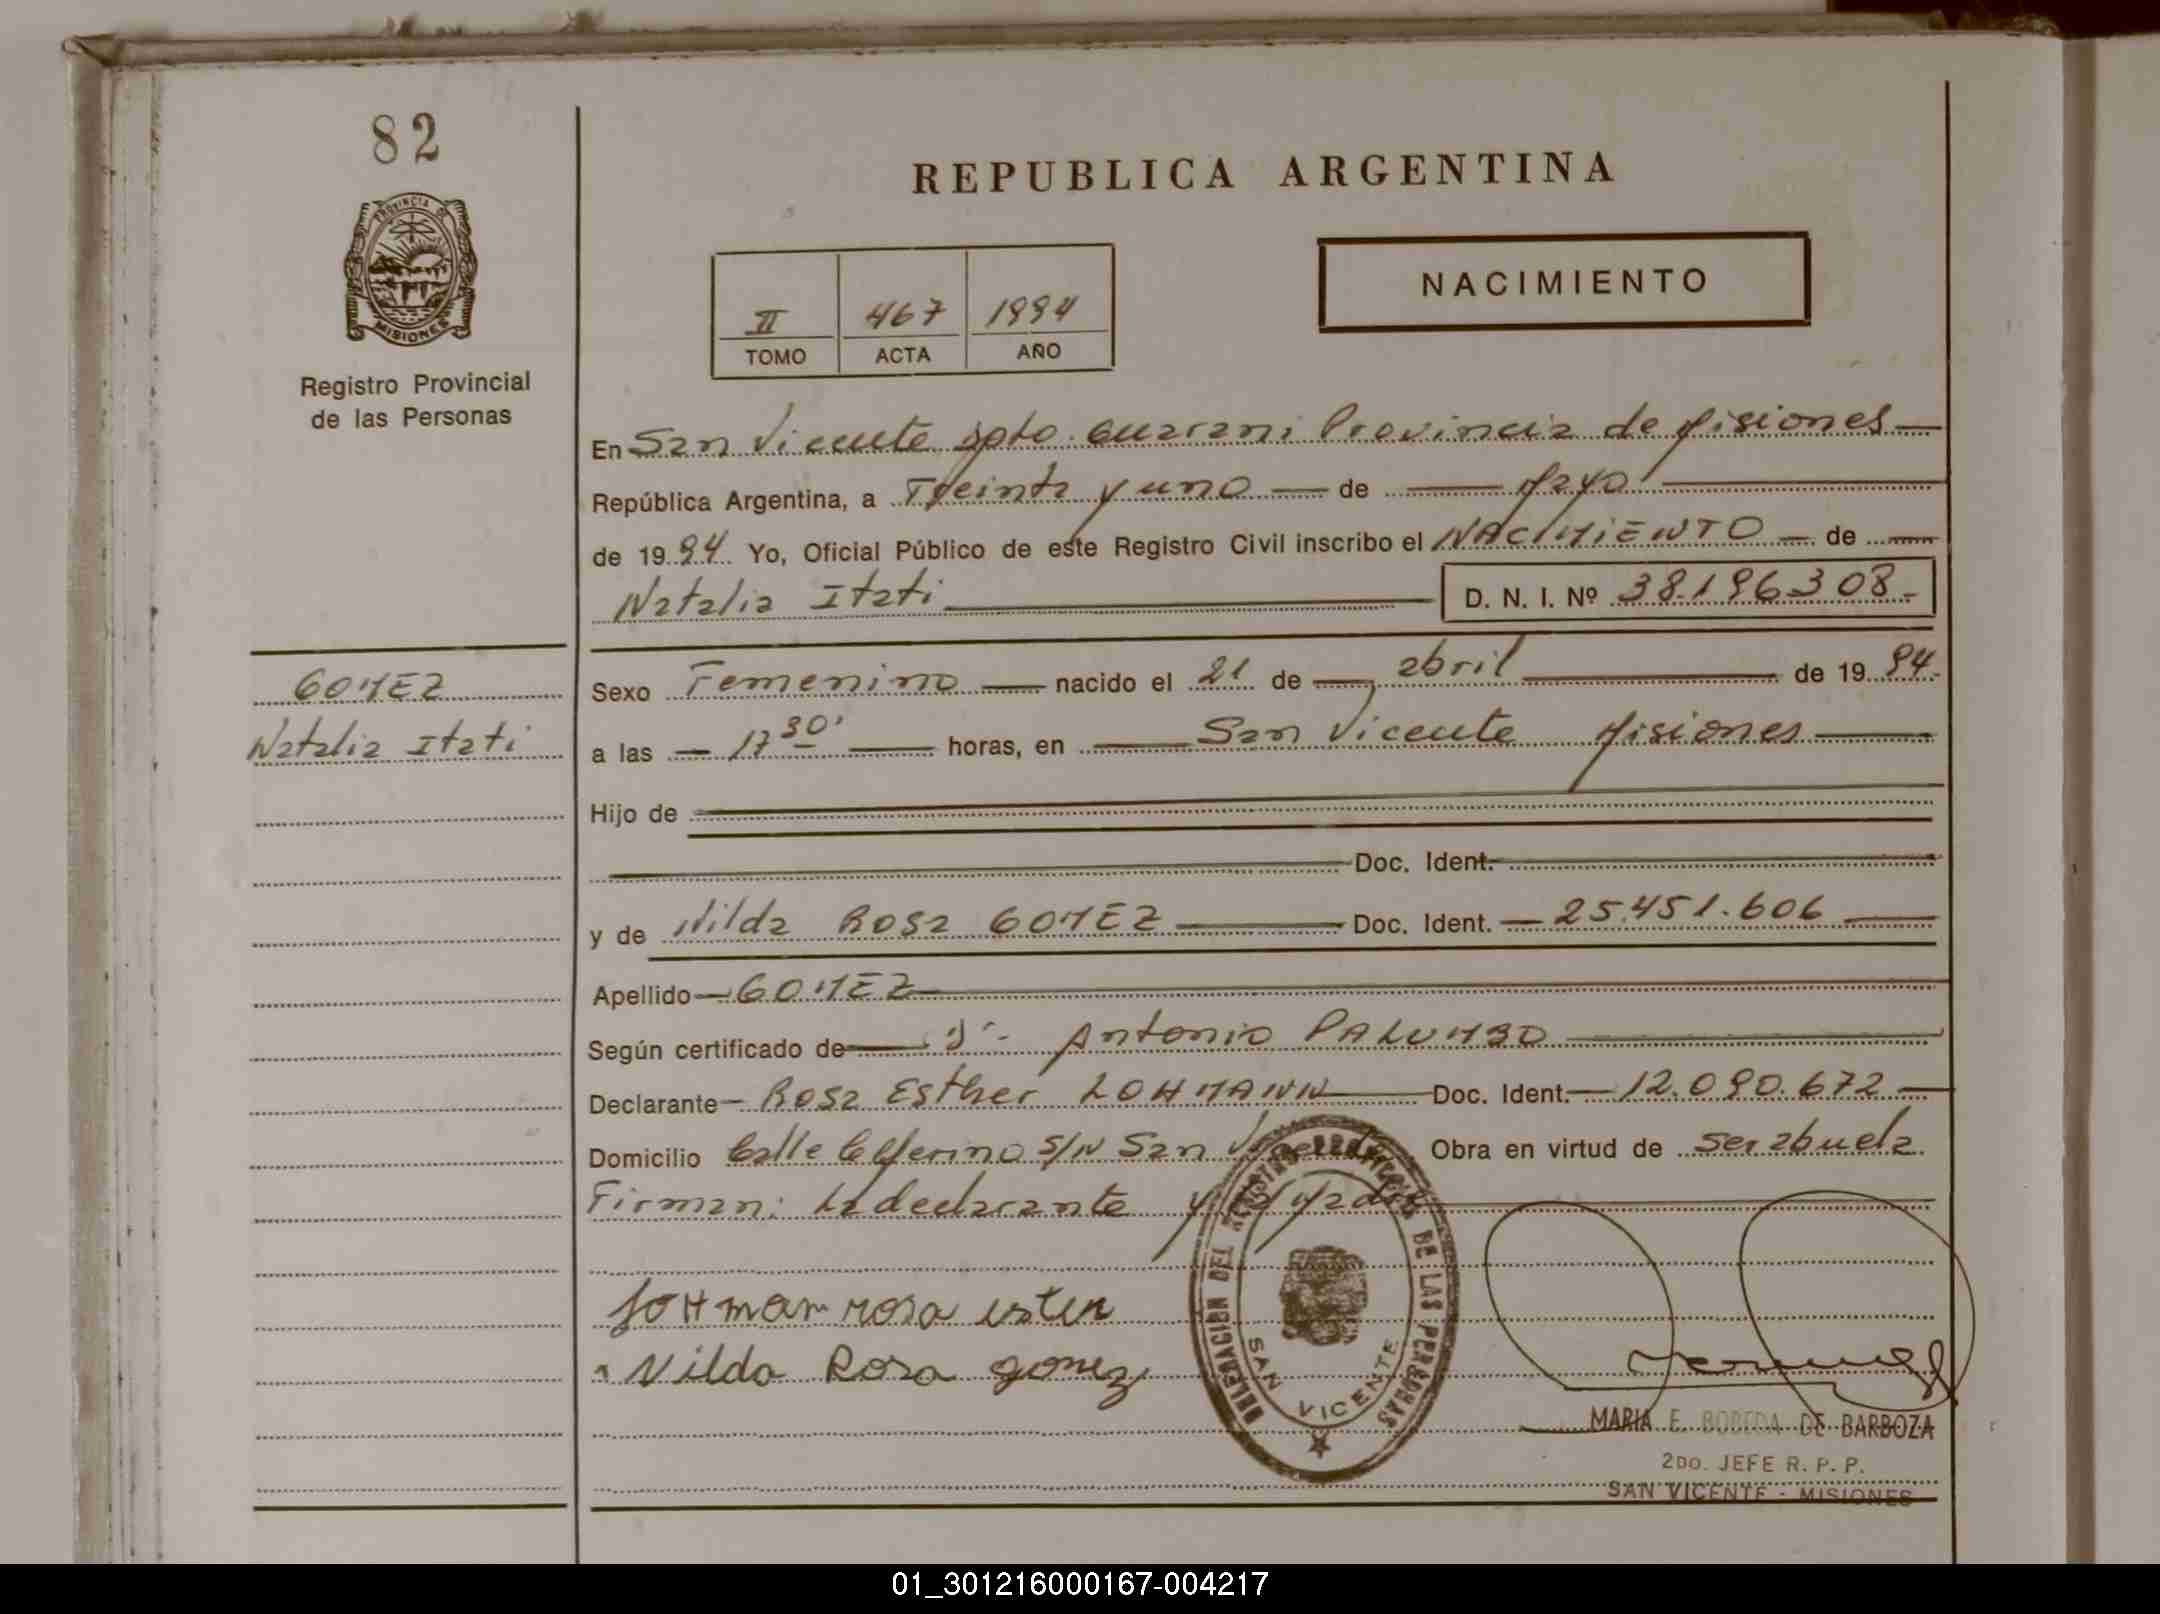 82
PROVINCIA DE
MISIONES
Registro Provincial
de las Personas
REPUBLICA ARGENTINA
II 467 1994
TOMO ACTA AÑO
NACIMIENTO
En San Vicente Dpto. Guarani Provincia de Misiones
República Argentina, a Treinta y uno de Mayo
de 1994 Yo, Oficial Público de este Registro Civil inscribo el NACIMIENTO de
Natalia Itati D. N. I. Nº 38.196.308.-
GOMEZ
Natalia Itati
Sexo Femenino nacido el 21 de abril de 1994.
a las 17 30' horas, en San Vicente Misiones
Hijo de
Doc. Ident.
y de Nilda Rosa GOMEZ Doc. Ident. 25.451.606
Apellido GOMEZ
Según certificado de Dr. Antonio PALUMBO
Declarante Rosa Esther LOHMANN Doc. Ident. 12.090.672
Domicilio Calle Ceferino S/N San Vicente Obra en virtud de ser abuela
Firman: La declarante y la Madre
loHman rosa ester
Nilda Rosa gomez
DELEGACION DEL REGISTRO PROVINCIAL DE LAS PERSONAS
SAN VICENTE
MARIA E. BOBEDA DE BARBOZA
2DO. JEFE R. P. P.
SAN VICENTE - MISIONES
01_301216000167-004217